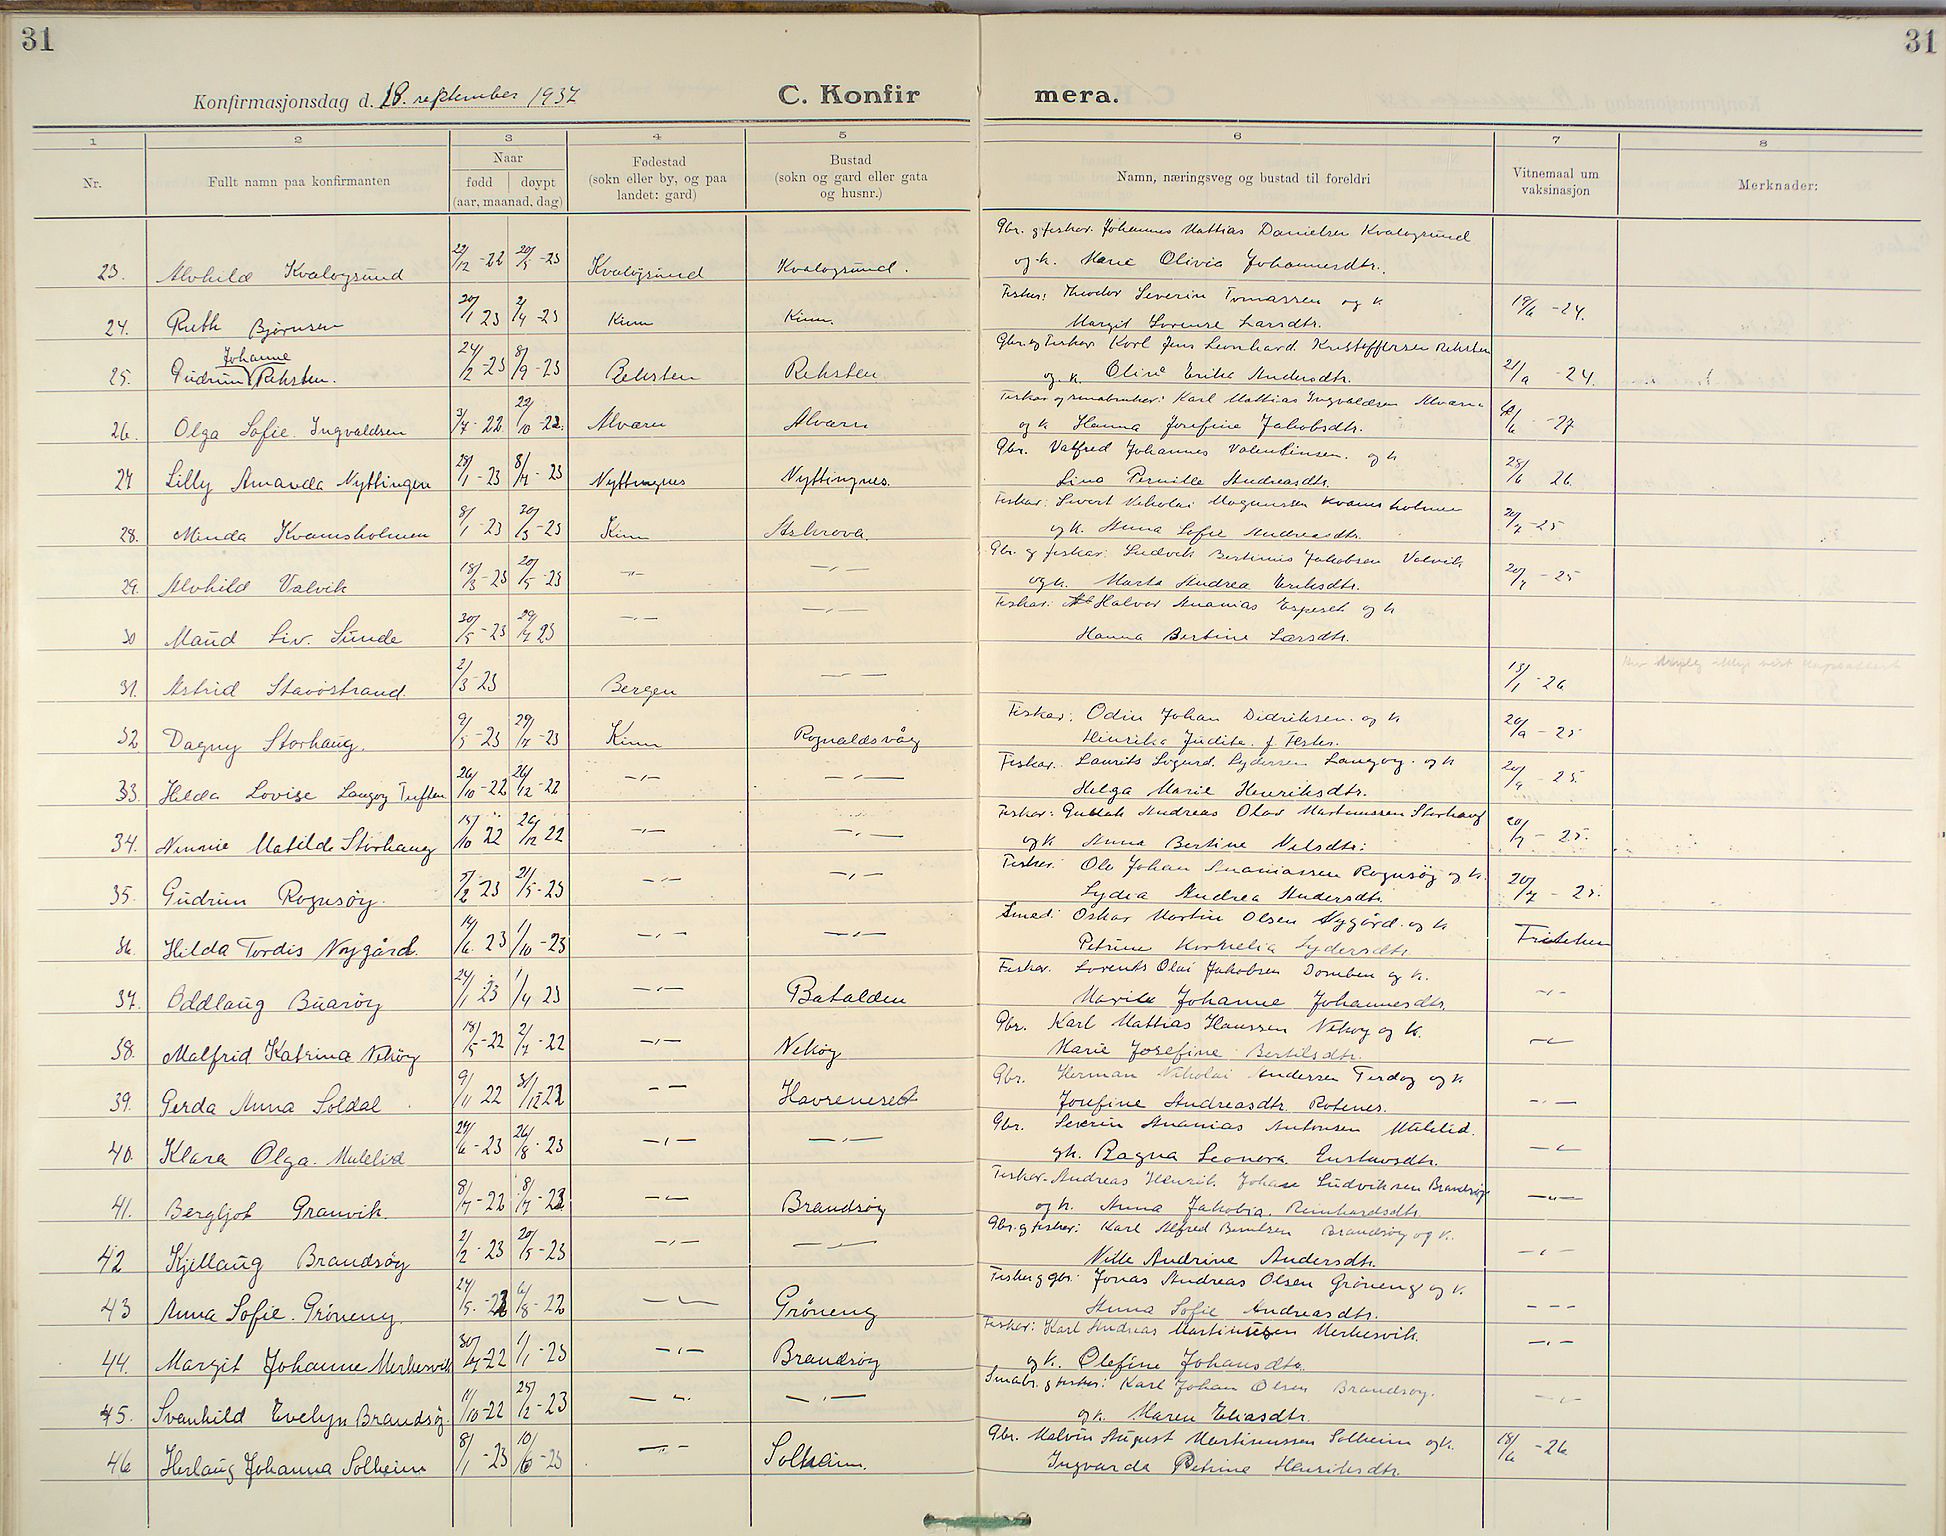 31
31
Konfirmasjonsdag d. 18. september 1937
C. Konfir mera.
1 2 3 4 5 6 7 8
Nr. Fullt namn paa konfirmanten Naar fødd døypt (aar, maanad, dag) Fødestad (sokn eller by, og paa landet: gard) Bustad (sokn og gard eller gata og husnr.) Namn, næringsveg og bustad til foreldri Vitnemaal um vaksinasjon Merknader:
Gbr. g fiskar. Johannes Mattias Danielsen Kvalogsund
23. Alvhild Kvalogsund 29/12 -22 20/5 -23 Kvalogsund Kvalogsund. og k. Marie Olivia Johannesdtr.
Fisker: Theodor Severin Tomassen og k
24. Ruth Bjørnsen 20/1 23 2/4 -23 Kinn Kinn. Margit Lorense Larsdtr. 19/6 -24.
Gbr. og Fisker Karl Jens Leonhard Kristoffersen Reksten
25. Gudrun Johanne Reksten. 24/2 -23 8/9 -23 Reksten Reksten og k. Erika Andersdtr. 21/9 -24.
Fiskar og smabruker: Karl Mathias Ingvaldsen Alværn
26. Olga Sofie Ingvaldsen 3/7 -22 22/10 -22. Alværn Alværn og k Hanna Josefine Jakobsdtr. -27
Gbr. Valfred Johannes Valentinsen. og k
27 Lilly Amanda Nyttingen 28/1 -23 8/7 -23 Nyttingnes Nyttingnes. Lina Pernille Andreasdtr. 28/6 26.
Fiskar: Sivert Nikolai Magnussen Kvamsholmen
28. Minda Kvamsholmen 8/1 -23 20/3 -23 Kinn Askrova. og k. Anna Sofie Andreasdtr. 20/7 -25
Gbr. g fiskar: Ludvik Bertinus Jakobsen Valvik
29. Alvhild Valvik 18/3 -23 20/5 -23 -"- -"- og k. Marta Andrea Eriksdtr. 20/7 -25
Fiskar: Halvor Ananias Espeset og k
30 Maud Liv. Sunde 30/5 -23 29/7 23 -"- -"- Hanna Bertine Larsdtr.
31. Astrid Stavøstrand. 2/3 -23 Bergen -"- 15/1 -26
Fiskar: Odin Johan Didriksen. og k
32 Dagny Storhaug. 9/5 -23 29/7 -23 Kinn Rognaldsvåg Hinrika Judite. f. 20/9 -25
Fiskar. Laurits Sigurd. Sydersen Langøy. og k
33. Hilda Lovise Langøy Tuften 26/10 -22 26/12 -22 -"- -"- Helga Marie Henriksdtr. 20/9 -25.
Fiskar: Gustak Andreas Olav Martinussen Storhaug
34. Nennie Matilde Storhaug 15/10 22 26/12 22 -"- -"- og k Anna Bertine Nilsdtr: 20/7 -25.
Fisker: Ole Johan Ananiassen Rognsøy og k.
35. Gudrun Rognsøy. 5/2 23 21/5 -23 -"- -"- Lydia Andrea Andersdtr. 20/7 -25.
Smed: Oskar Martin Olsen Nygård. og k
36. Hilda Tordis Nygård. 14/6 23 1/10 -23 -"- -"- Petrine Kornelia Sydersdtr.
Fiskar. Lorents Olai Jakobsen Domben og k.
37. Oddlaug Buarøy 24/1 23 1/4 23 -"- Batalden Marile Johanne Johannesdtr. -"-
Gbr. Karl Mattias Hanssen Nekøy og k.
38. Malfrid Katrina Nekøy 18/5 -22 2/7 -22 -"- Nekøy Marie Josefine Bertilsdtr. -"-
Gbr. Herman Nikolai Andersen Terdøy og k
39. Gerda Anna Soldal 9/11 22 31/12 22 -"- Havreneset Josefine Andreasdtr. Rotenes. -"-
Gbr. Severin Ananias Antonsen Mulelid.
40. Klara Olga. Mulelid 24/6 -23 26/8 -23 -"- -"- gk. Ragna Leonora. Gustavsdtr. -"-
Fiskar. Andreas Henrik Johan Ludviksen Brandsøy
41. Bergljot Granvik. 8/4 -22 8/7 -22 -"- Brandsøy og k. Anna Jakobia. Reinhardsdtr. -"-
Gbr. g fiskar: Karl Alfred Berntsen Brandsøy og k.
42 Kjellaug Brandsøy 2/2 -23 20/5 -23 -"- -"- Nille Andrine Andersdtr. -"-
Fisker g gbr: Jonas Andreas Olsen Grøneng og k.
43 Anna Sofie. Grøneng. 24/5 -22 6/8 -22 -"- Grøneng Anna Sofie Andreasdtr. ---
Fiskar: Karl Andreas Martinusen Merkesvik.
44. Margit Johanne Merkesvik -22 1/1 -23 -"- Brandsøy og k. Olefine Johansdtr. -"-
Smabr. g fisker: Karl Johan Olsen Brandsøy.
45. Svanhild Evelyn Brandsøy. 11/10 -22 25/2 -23 -"- -"- og k. Maren Eliasdtr. -"-
Gbr. Malvin August Martinussen Solheim og k.
46 Herlaug Johanna Solheim 8/1 -23 10/6 -23 -"- Solheim. Ingvarda Petrine Henriksdtr. 18/6 -26